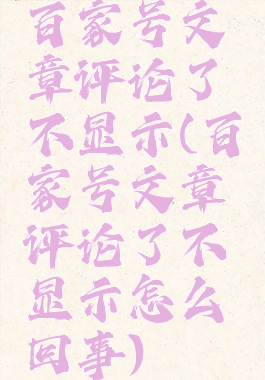 百家号文
章评论了
不显示(百
家号文章
评论了不
显示怎么
回事)